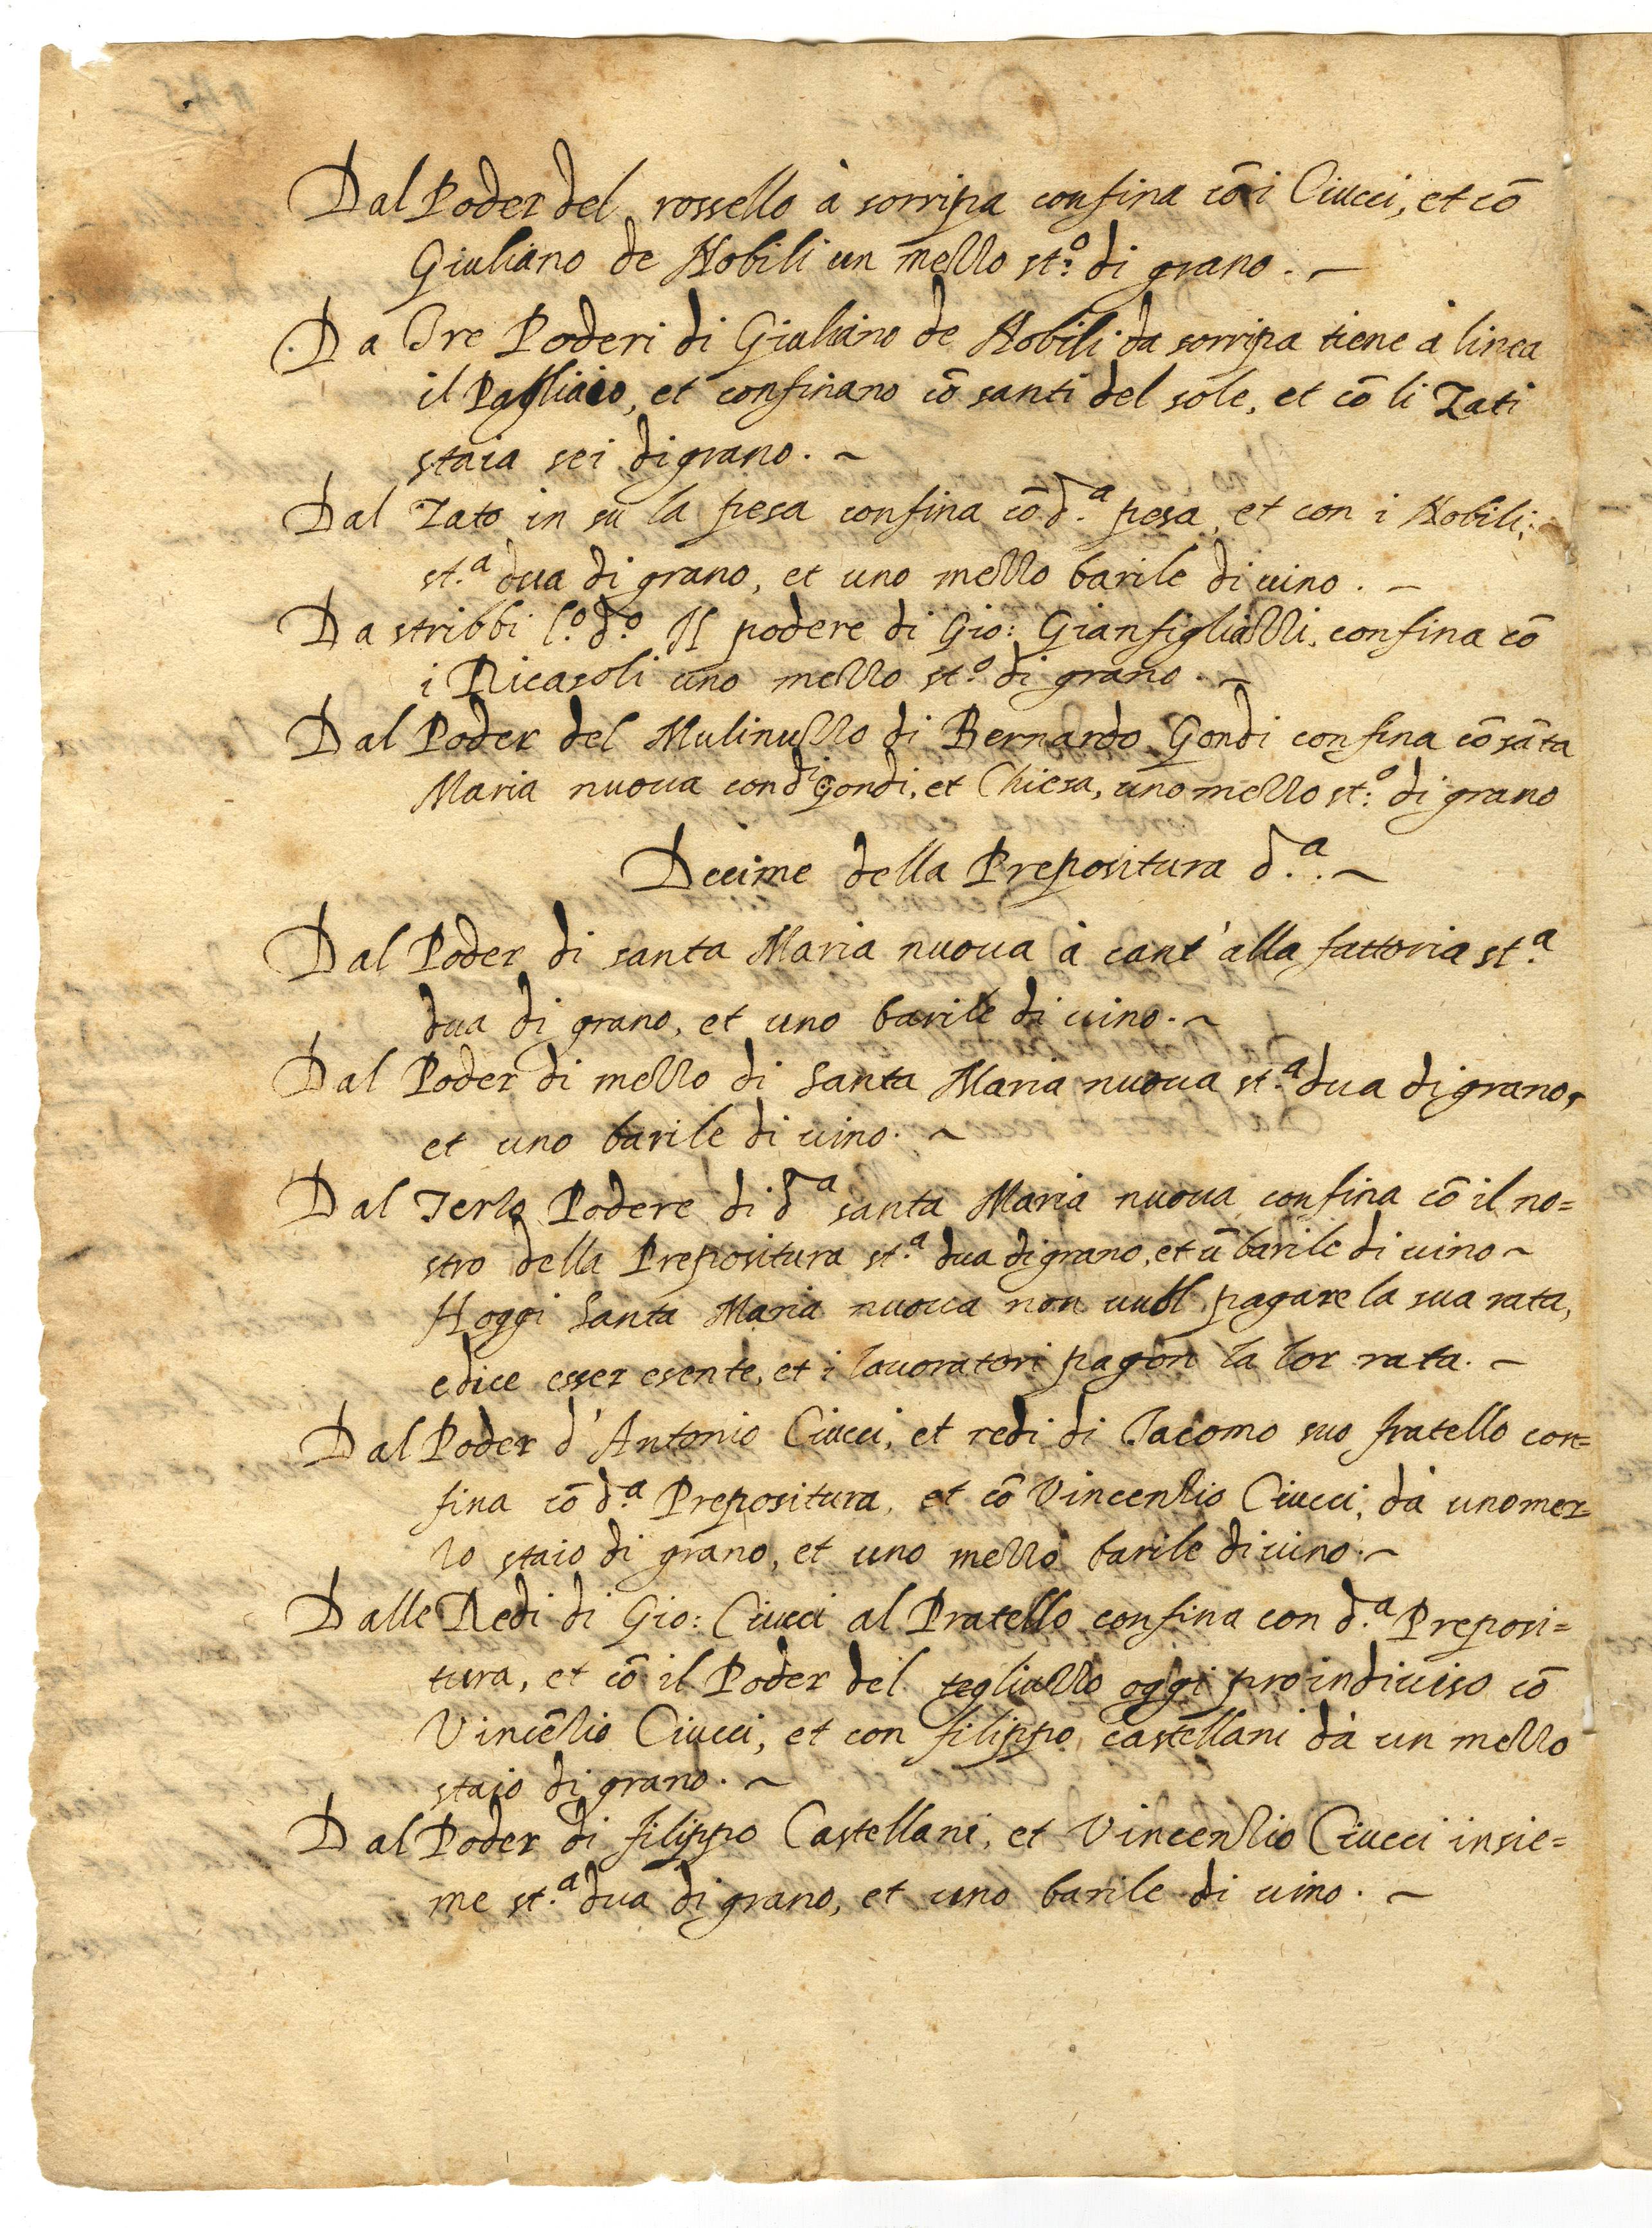 Dal Poder del rossello à sorripa confina cō i Ciucci, et cō
Giuliano de Nobili un mezzo st:º di grano. ~
Da Tre Poderi di Giuliano de Nobili da sorripa tiene à linea
il Pagliaio, et confinano cō santi del sole, et cō li Zati
staia sei di grano. ~
Dal Zato in su la pesa confina cō d.ª pesa, et con i Nobili;
st.ª dua di grano, et uno mezzo barile di uino. ~
Da stribbi l.º d.º Il podere di Gio: Gianfigliazzi, confina cō
i Ricasoli uno mezzo st.º di grano. ~
Dal Poder del Mulinuzzo di Bernardo Gondi confina cō sāta
Maria nuoua con di Gondi, et Chiesa, uno mezzo st:º di grano
Decime della Prepositura d.ª. ~
Dal Poder di santa Maria nuoua à cant' alla fattoria st.ª
dua di grano, et uno barile di uino. ~
Dal Poder di mezzo di Santa Maria nuoua st.ª dua di grano,
et uno barile di uino. ~
Dal Terzo Podere di d.ª santa Maria nuoua confina cō il no=
stro della Prepositura st.ª dua di grano, et ū barile di uino ~
Hoggi Santa Maria nuoua non uuol pagare la sua rata,
e dice esser esente, et i lauoratori pagon la lor rata. ~
Dal Poder d' Antonio Ciucci, et redi di Iacomo suo fratello con=
fina cō d.ª Prepositura, et cō Vincenzio Ciucci, dà uno mez=
zo staio di grano, et uno mezzo barile di uino. ~
Dalle Redi di Gio: Ciucci al Pratello confina con d.ª Preposi=
tura, et cō il Poder del tegliuzzo oggi pro indiuiso cō
Vincēzio Ciucci, et con filippo castellani dà un mezzo
staio di grano. ~
Dal Poder di filippo Castellani, et Vincenzio Ciucci insie=
me st.ª dua di grano, et uno barile di uino. ~